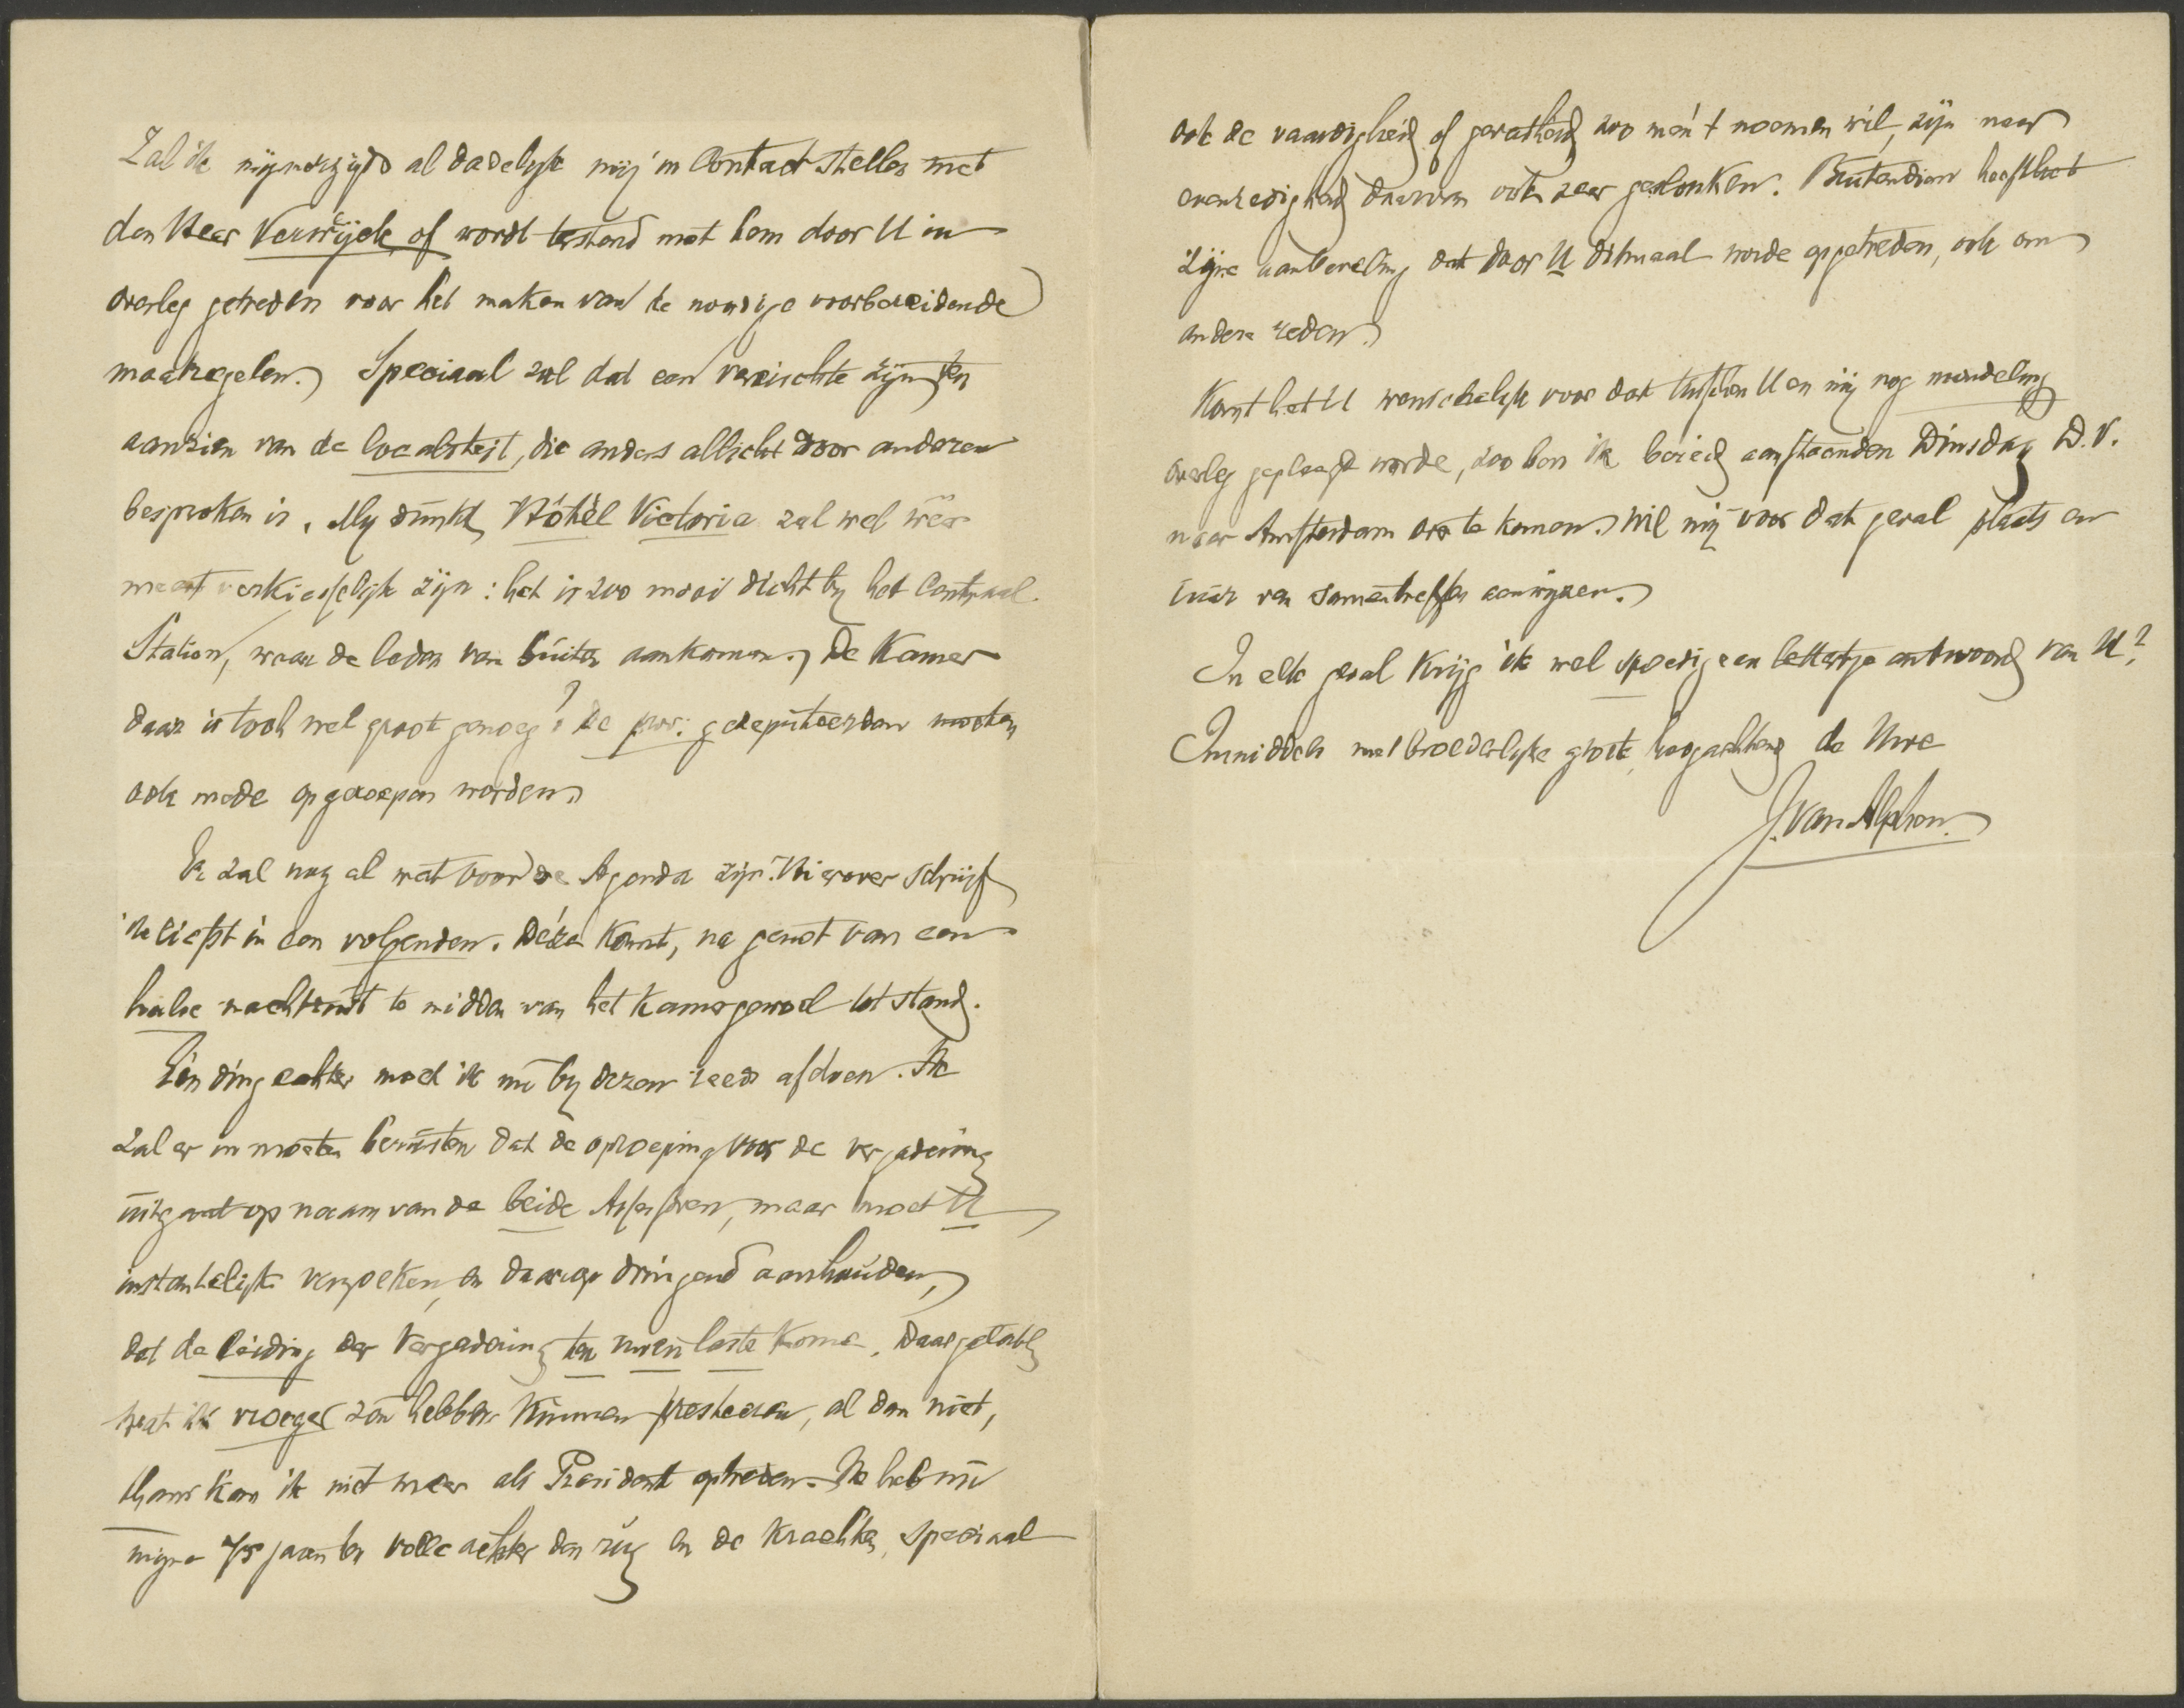 Zal ik mijnerzijds al dadelijk mij in Contact stellen met
den Heer Verwijck, of wordt terstond met hem door U in
overleg getreden voor het maken van de noodige voorbereidende
maatregelen. Speciaal zal dat een vereischte zijn ten
aanzien van de localiteit, die anders allicht door anderen
besproken is. Mij dunkt, Hôtél Victoria zal wel weer
meest verkieselijk zijn: het is zoo mooi dicht bij het Centraal-
Station, waar de leden van buiten aankomen. De Kamer
daar is toch wel groot genoeg? De prov. gedeputeerden moeten
ook mede opgeroepen worden.
Er zal nog al wat voor de Agenda zijn. Hierover schrijf
ik liefst in een volgenden. Déze komt, na genot van een
halve nachtrust te midden van het kamergewoel tot stand.
Eén ding echter moet ik nu bij dezen reeds afdoen. Ik
zal er in moeten berusten dat de oproeping voor de vergadering
uitgaat op naam van de beide Assessoren, maar moet U
instantelijk verzoeken, en daarop dringend aanhouden,
dat de leiding der Vergadering ten uwen laste kome. Daargelaten
wat ik vroeger zou hebben kunnen presteeren, al dan niet,
thans kan ik niet meer als President optreden. Ik heb nu
mijne 75 jaren ten volle achter den rug en de krachten, speciaal
ook de vaardigheid of gevatheid, zoo men 't noemen wil, zijn naar
evenredigheid daarvan ook zeer geslonken. Buitendien heeft het
zijne aanbeveling dat door U ditmaal worde opgetreden, ook om
andere reden.
Komt het U wenschelijk voor dat tusschen U en mij nog mondeling
overleg gepleegd worde, zoo ben ik bereid aanstaanden Dinsdag D.V.
naar Amsterdam over te komen. Wil mij voor dat geval plaats en
uur van samentreffen aanwijzen.
In elk geval krijg ik wel spoedig een lettertje antwoord van U?
Inmiddels met broederlijke groete, hoogachtend de Uwe
J. van Alphen.